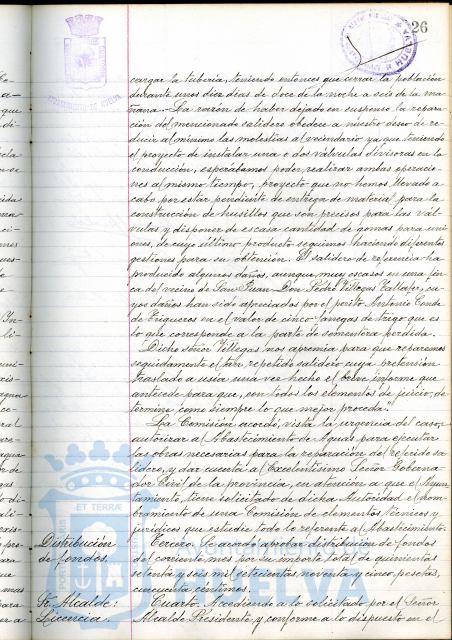 26
cargar la tuberia, teniendo entonces que cerrar la población
durante unos diez dias de doce de la noche a seis de la ma-
ñana.- La razón de haber dejado en suspenso la repara-
ción del mencionado salidero obedece a nuestro deseo de re-
ducir al mínimo las molestias al vecindario ya que teniendo
el proyecto de instalar una o dos válvulas divisoras en la
conducción, esperábamos poder realizar ambas operacio-
nes al mismo tiempo, proyecto que no hemos llevado a
cabo por estar pendiente de entrega de material para la
construcción de husillos que son precisos para las vál-
vulas y disponer de escasa cantidad de gomas para unio-
nes, de cuyo último producto seguimos haciendo diferentes
gestiones para su obtención. El salidero de referencia ha
producido algunos daños, aunque muy escasos en una fin-
ca del vecino de San Juan Don Pedro Villegas, cu-
yos daños han sido apreciados por el perito Antonio Conde
de Trigueros en el valor de cinco fanegas de trigo que es
lo que corresponde a la parte de sementera perdida.
Dicho señor Villegas nos apremia para que reparemos
seguidamente el tan repetido salidero cuya pretensión
traslado a usia una vez hecho el breve informe que
antecede para que, con todos los elementos de juicio, de-
termine como siempre lo que mejor proceda".
La Comisión acordó, vista la urgencia del caso,
autorizar al Abastecimiento de Aguas para ejecutar
las obras necesarias para la reparación del referido sa-
lidero, y dar cuenta al Excelentísimo Señor Goberna-
dor Civil de la provincia, en atención a que el Ayun-
tamiento, tiene solicitado de dicha Autoridad el nom-
bramiento de una Comisión de elementos técnicos y
jurídicos que estudie todo lo referente al Abastecimiento.
Distribución
de fondos.
Tercero. Se acordó aprobar distribución de fondos
del corriente mes por su importe total de quinientas
setenta y seis mil setecientas noventa y cinco pesetas,
cincuenta céntimos.
Sr. Alcalde:
Licencia.
Cuarto. Accediendo a lo solicitado por el Señor
Alcalde Presidente, y conforme a lo dispuesto en el
Ayuntamiento de
HUELVA
ET TERRÆ